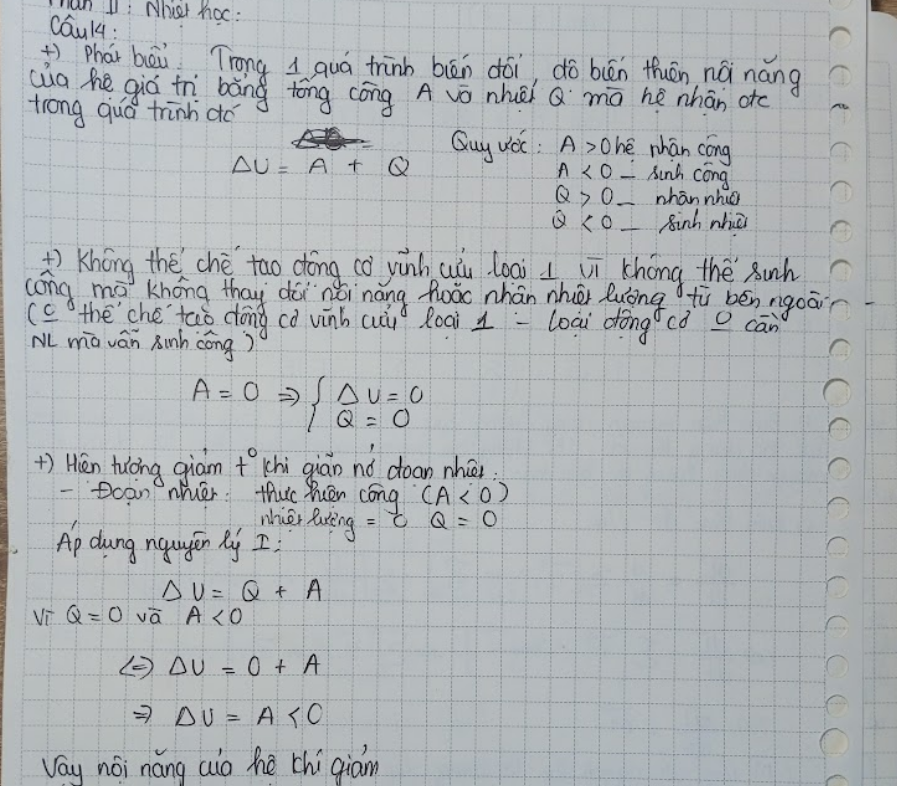 Phần II : Nhiệt học :
Câu 14 :
+) Phát biểu : Trong 1 quá trình biến đổi, độ biến thiên nội năng
của hệ giá trị bằng tổng công A và nhiệt Q mà hệ nhận đtc
trong quá trình đó
ΔU = A + Q
Quy ước : A > 0 hệ nhận công
A < 0 _ sinh công
Q > 0 _ nhận nhiệt
Q < 0 _ sinh nhiệt
+) Không thể chế tạo động cơ vĩnh cửu loại 1 vì không thể sinh
công mà không thay đổi nội năng hoặc nhận nhiệt lượng từ bên ngoài
( thể chế tạo động cơ vĩnh cửu loại 1 - loại động cơ cần
NL mà vẫn sinh công )
A = 0 => { ΔU = 0
Q = 0
+) Hiện tượng giảm t° khi giãn nở đoạn nhiệt :
- Đoạn nhiệt : thực hiện công (A < 0)
nhiệt lượng = Q = 0
Áp dụng nguyên lý I :
ΔU = Q + A
Vì Q = 0 và A < 0
<=> ΔU = 0 + A
=> ΔU = A < 0
Vậy nội năng của hệ khí giảm